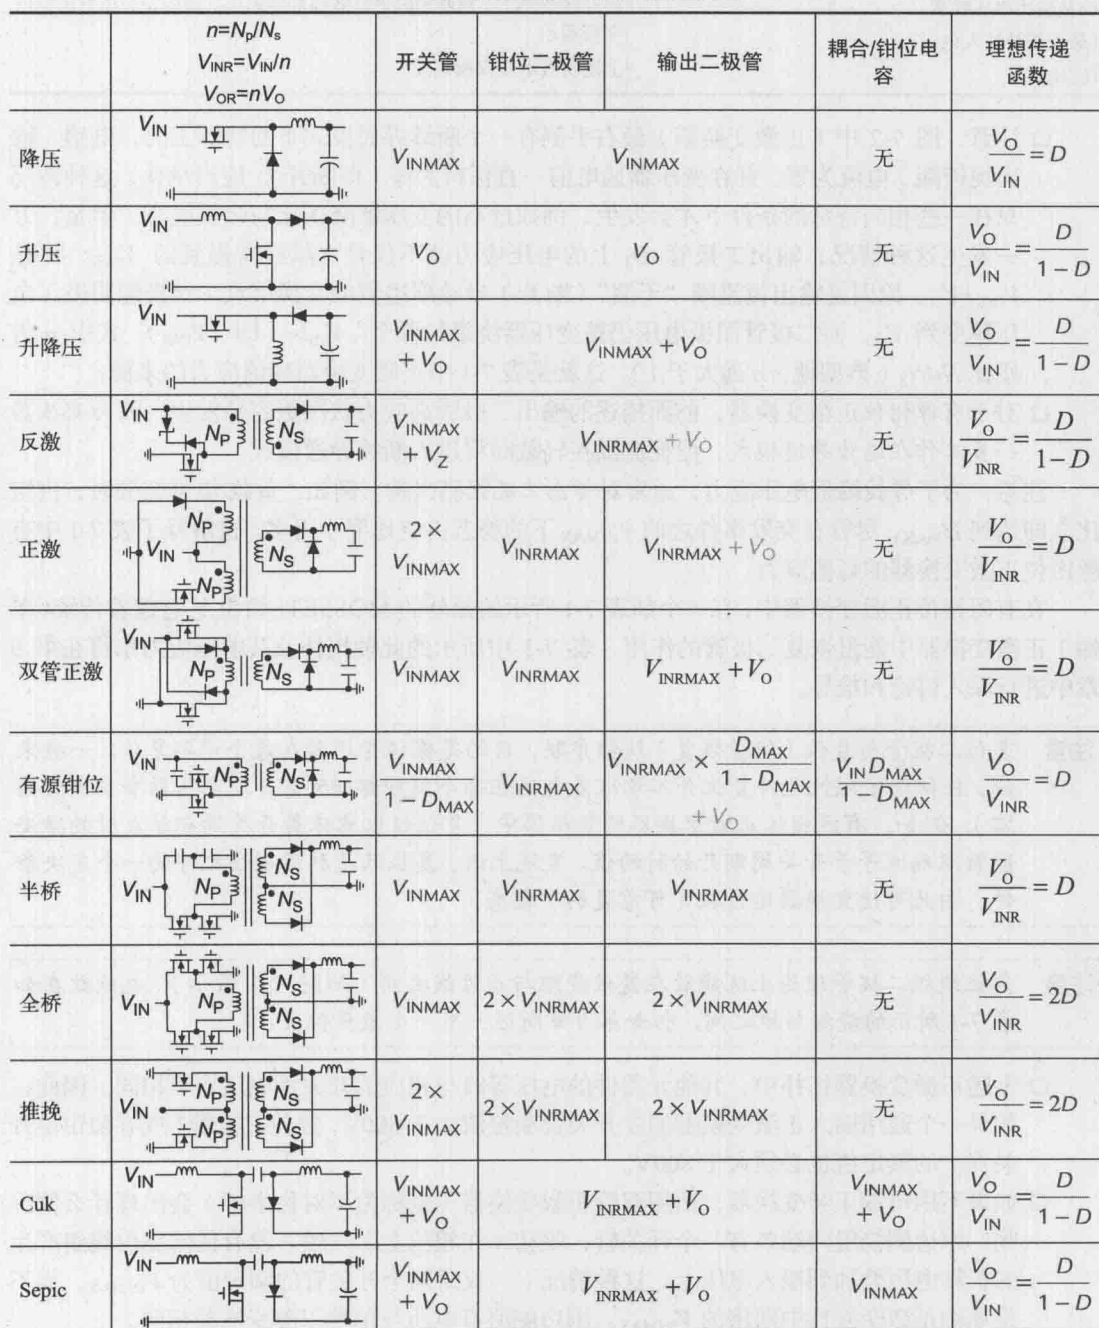 n=Np/Ns
VINR=VIN/n
VOR=nVO
开关管
钳位二极管
输出二极管
耦合/钳位电容
理想传递函数
降压
VIN
VINMAX
VINMAX
无
VO/VIN = D
升压
VIN
VO
VO
无
VO/VIN = D/1-D
升降压
VIN
VINMAX + VO
VINMAX + VO
无
VO/VIN = D/1-D
反激
VIN
NP
NS
VINMAX + VZ
VINRMAX + VO
无
VO/VINR = D/1-D
正激
NP
VIN
NP
NS
2× VINMAX
VINRMAX
VINRMAX + VO
无
VO/VINR = D
双管正激
VIN
NP
NS
VINMAX
VINRMAX
VINRMAX + VO
无
VO/VINR = D
有源钳位
VIN
NP
NS
VINMAX/1-DMAX
VINRMAX
VINRMAX × DMAX/1-DMAX + VO
VIN DMAX/1-DMAX
VO/VINR = D
半桥
VIN
NP
NS
NS
VINMAX
VINRMAX
VINRMAX
无
VO/VINR = D
全桥
VIN
NP
NS
NS
VINMAX
2× VINRMAX
2× VINRMAX
无
VO/VINR = 2D
推挽
VIN
NP
NP
NS
NS
2× VINMAX
2× VINRMAX
2× VINRMAX
无
VO/VINR = 2D
Cuk
VIN
VINMAX + VO
VINRMAX + VO
VINMAX + VO
VO/VIN = D/1-D
Sepic
VIN
VINMAX + VO
VINRMAX + VO
VINMAX
VO/VIN = D/1-D